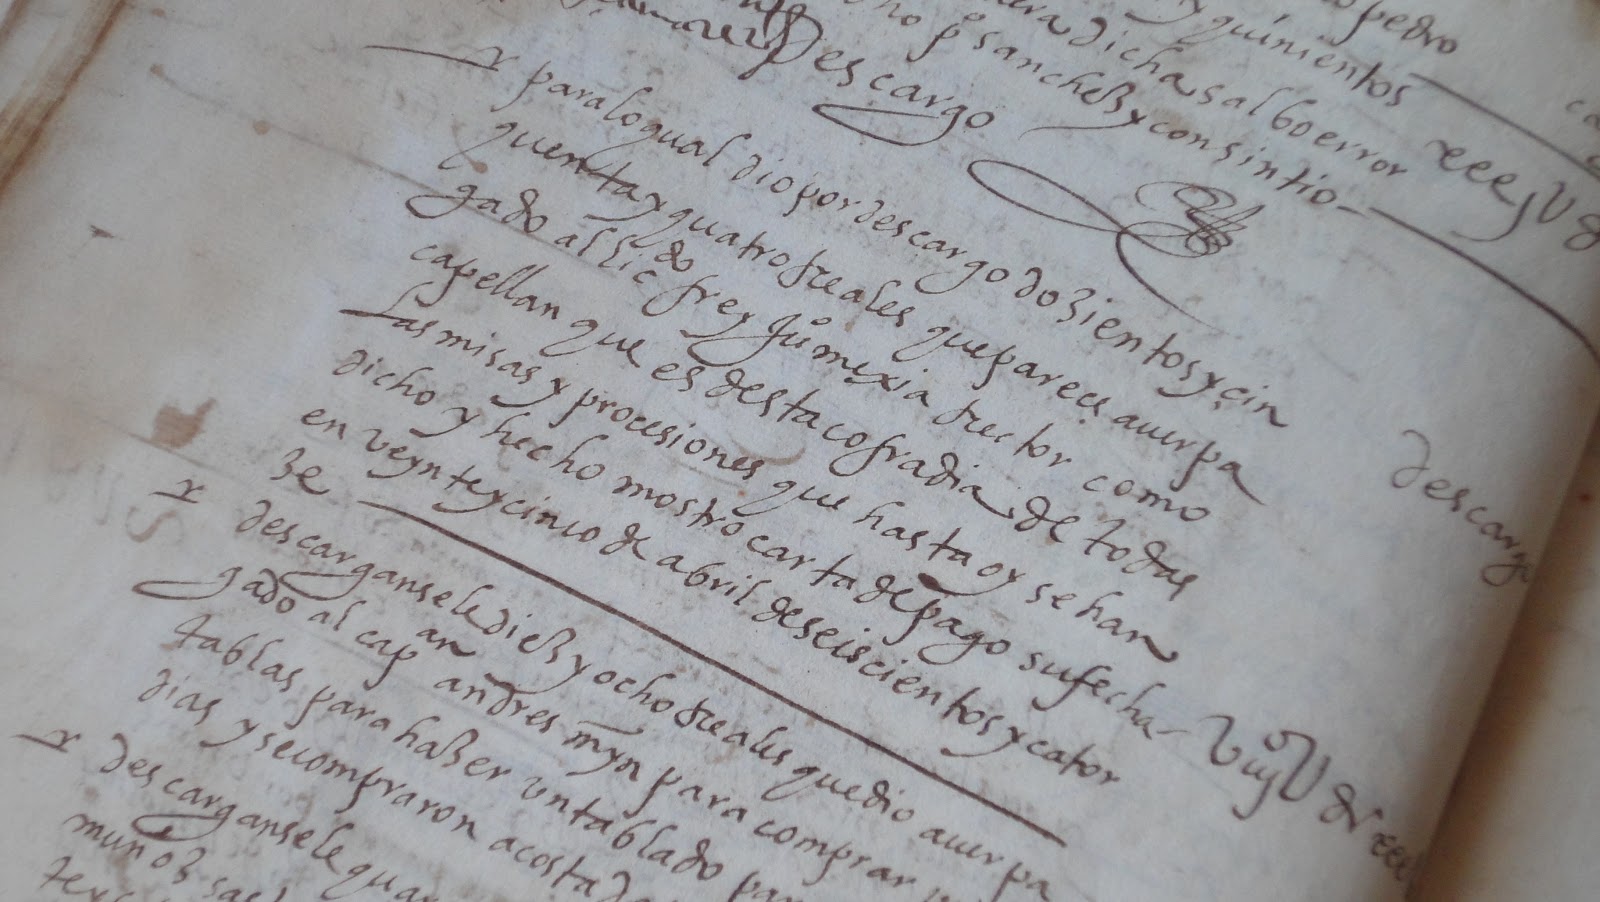 pedro
y quinientos
dichas al bo error
no p sanchez y consintio
descargo
y para lo qual dio por descargo dozientos y cin
quenta y quatro rreales que parece auer pa
gado al licdo frey juo mexia rrector como
capellan que es desta cofradia de todas
las misas y procesiones que hasta oy se han
dicho y hecho mostro carta de pago su fecha
en veynte y cinco de abril de seiscientos y cator
ze
descargo
y descarganse le diez y ocho rreales que dio auer pa
gado al capan andres myn para comprar
tablas para hazer un tablado para
dias y se compraron a costa de
y descarganse le qua
muñoz sac